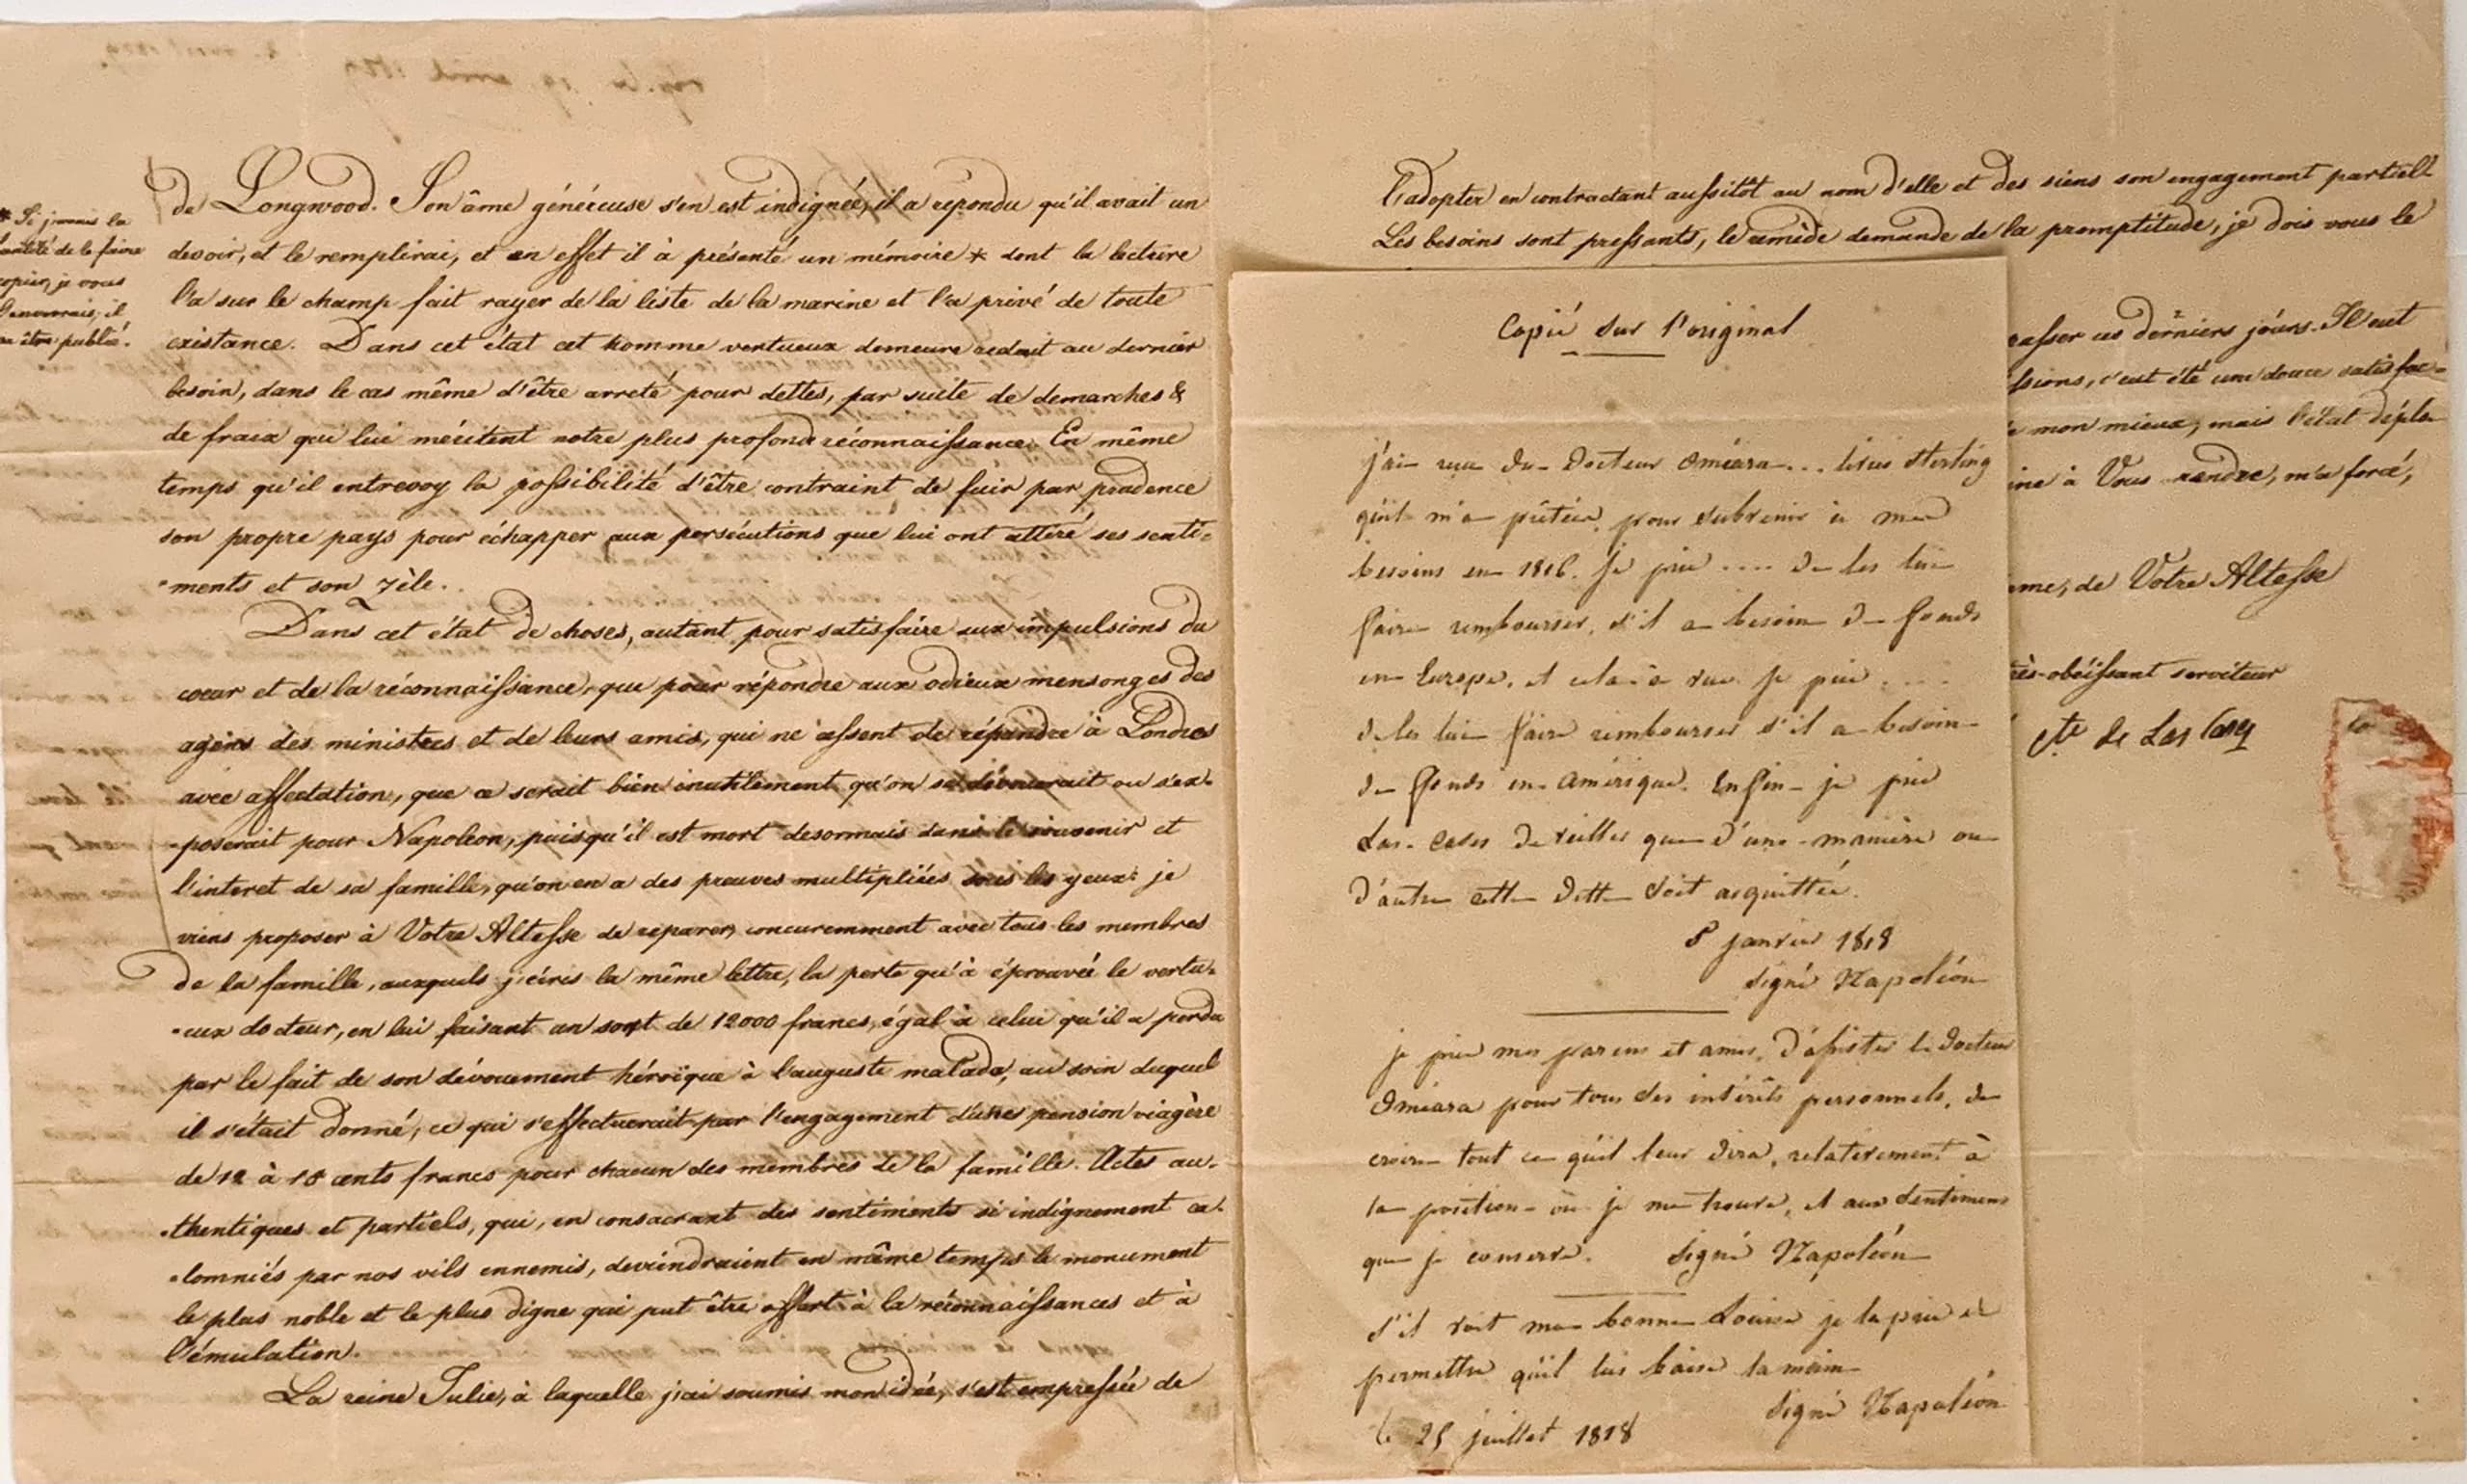 * Si j'avais la
facilité de le faire
copier, je vous
l'enverrais; il
va être publié.
de Longwood. Son âme généreuse s'en est indignée, il a repondu qu'il avait un
devoir, et le remplirai, et en effet il à présenté un mémoire * dont la lecture
l'a sur le champ fait rayer de la liste de la marine et l'a privé de toute
existance. Dans cet état cet homme vertueux demeure reduit au dernier
besoin, dans le cas même d'être arreté pour dettes, par suite de demarches &
de fraix qui lui méritent notre plus profonde réconnaissance. En même
temps qu'il entrevoy la possibilité d'être contraint de fuir par prudence
son propre pays pour échapper aux persécutions que lui ont attiré ses senti-
-ments et son zèle.
Dans cet état de choses, autant pour satisfaire aux impulsions du
cœur et de la réconnaissance, que pour répondre aux odieux mensonges des
agens des ministres et de leurs amis, qui ne cessent de répandre à Londres
avec affectation, que ce serait bien inutilement qu'on se dévouerait ou s'ex-
-poserait pour Napoléon, puisqu'il est mort desormais dans le souvenir et
l'interet de sa famille, qu'on en a des preuves multipliées sous les yeux: je
viens proposer à Votre Altesse de réparer, concuremment avec tous les membres
de la famille, auxquels j'écris la même lettre, la perte qu'à éprouvée le vertu-
-eux docteur, en lui faisant un sort de 12000 francs, égal à celui qu'il a perdu
par le fait de son dévouement héroïque à l'auguste malade, au soin duquel
il s'était donné; ce qui s'effectuerait par l'engagement d'une pension viagère
de 12 à 15 cents francs pour chacun des membres de la famille. Actes au-
-thentiques et partiels, qui, en consacrant des sentiments si indignement ca-
-lomniés par nos vils ennemis, deviendraient en même temps le monument
le plus noble et le plus digne qui put être offert à la réconnaissance et à
l'émulation.
La reine Julie, à laquelle j'ai soumis mon idée, s'est empressée de
l'adopter en contractant aussitôt au nom d'elle et des siens son engagement partiell
Les besoins sont pressants, le remède demande de la promptitude, je dois vous le
passer ces derniers jours. Il eut
c'eut été une douce satisfac-
mon mieux, mais l'état déplo-
à Vous rendre, m'a forcé,
de Votre Altesse
très-obéissant serviteur
Cte de Las Cases
Copié sur l'original
j'ai reçu du Docteur Oméara ... livres sterling
qu'il m'a prêtées pour subvenir à mes
besoins en 1816. Je prie .... de les lui
faire rembourser, s'il a besoin de fonds
en Europe, et cela à vue. Je prie ....
de les lui faire rembourser s'il a besoin
de fonds en Amérique. Enfin je prie
Las-Cases de veiller que d'une manière ou
d'autre cette dette soit acquittée.
8 janvier 1818
Signé Napoléon
je prie mes parens et amis, d'assister le Docteur
Oméara pour tous ses intérêts personnels, de
croire tout ce qu'il leur dira, relativement à
la position où je me trouve, et aux sentimens
que je conserve. Signé Napoléon
S'il voit ma bonne Louise je la prie de
permettre qu'il lui baise la main
Signé Napoléon
le 25 juillet 1818